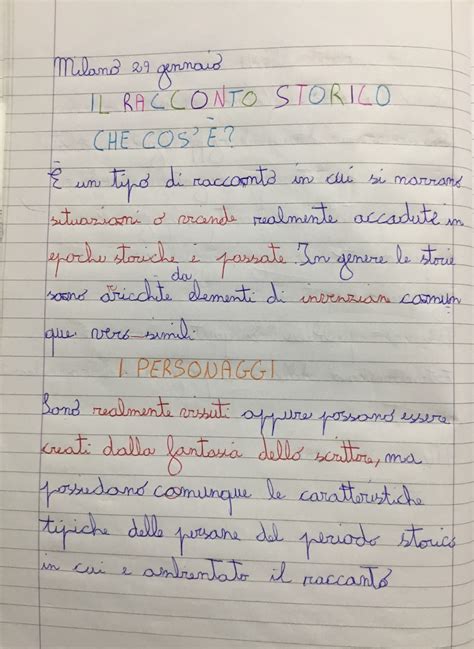 Milano 29 gennaio
IL RACCONTO STORICO
CHE COS'È?
È un tipo di racconto in cui si narrano
situazioni o vicende realmente accadute in
epoche storiche e passate. In genere le storie
da
sono aricchte elementi di invenzian comun
que vero-simili
I PERSONAGGI
Sono realmente vissuti oppure possono essere
creati dalla fantasia dello scrittore, ma
possedano comunque le caratteristiche
tipiche delle persane del periodo storico
in cui e ambrentato il raccanto